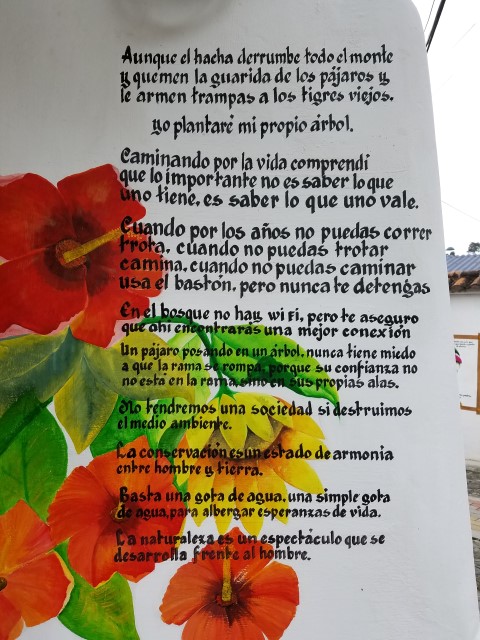 Aunque el hacha derrumbe todo el monte
y quemen la guarida de los pájaros y
le armen trampas a los tigres viejos.
yo plantaré mi propio árbol.
Caminando por la vida comprendí
que lo importante no es saber lo que
uno tiene, es saber lo que uno vale.
Cuando por los años no puedas correr
trota, cuando no puedas trotar
camina, cuando no puedas caminar
usa el bastón, pero nunca te detengas
En el bosque no hay wi Fi, pero te aseguro
que ahi encontrarás una mejor conexión
Un pájaro posando en un árbol, nunca tiene miedo
a que la rama se rompa, porque su confianza no
no está en la rama, sino en sus propias alas.
No tendremos una sociedad si destruimos
el medio ambiente.
La conservación es un estado de armonia
entre hombre y tierra.
Basta una gota de agua, una simple gota
de agua, para albergar esperanzas de vida.
La naturaleza es un espectáculo que se
desarrolla frente al hombre.